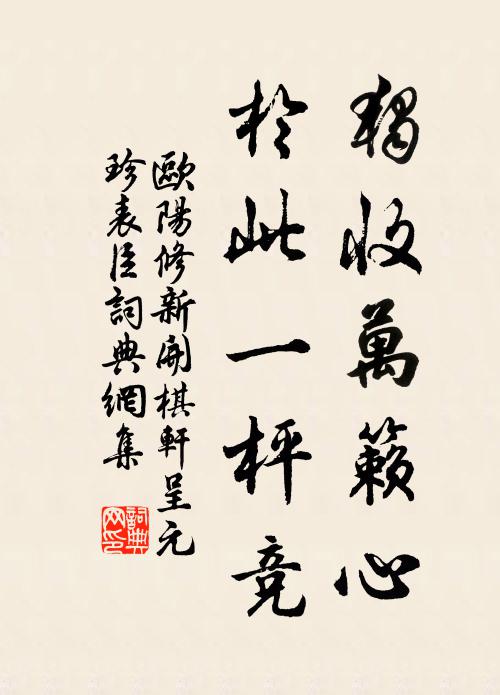 獨收萬籟心
於此一枰竞
歐陽修新開棋軒呈元
珍表臣詞典網集
詞典
网印